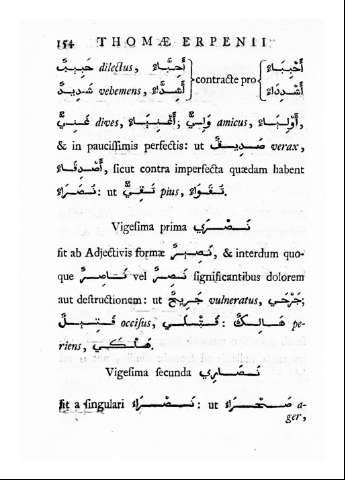 154 THOMÆ ERPENII
حَبِيبٌ dilectus, أَحِبَّاءُ } contracte pro { أَحْبِبَاءُ
شَدِيدٌ vehemens, أَشِدَّاءُ } { أَشْدِدَاءُ
غَنِيٌّ dives, أَغْنِيَاءُ; وَلِيٌّ amicus, أَوْلِيَاءُ,
& in paucissimis perfectis: ut صَدِيقٌ verax,
أَصْدِقَاءُ, sicut contra imperfecta quædam habent
نُصَرَاءُ: ut تَقِيٌّ pius, تُقَوَاءُ.
Vigesima prima نَصْرَي
fit ab Adjectivis formæ نَصِيرٌ, & interdum quo-
que نَاصِرٌ vel نَصِرٌ significantibus dolorem
aut destructionem: ut جَرِيحٌ vulneratus, جَرْحَي;
قَتِيلٌ occisus, قَتْلَي: هَالِكٌ pe-
riens, هَلْكَي.
Vigesima secunda نَصَارِي
fit a singulari نَصْرَاءُ: ut صَحْرَاءُ a-
ger,